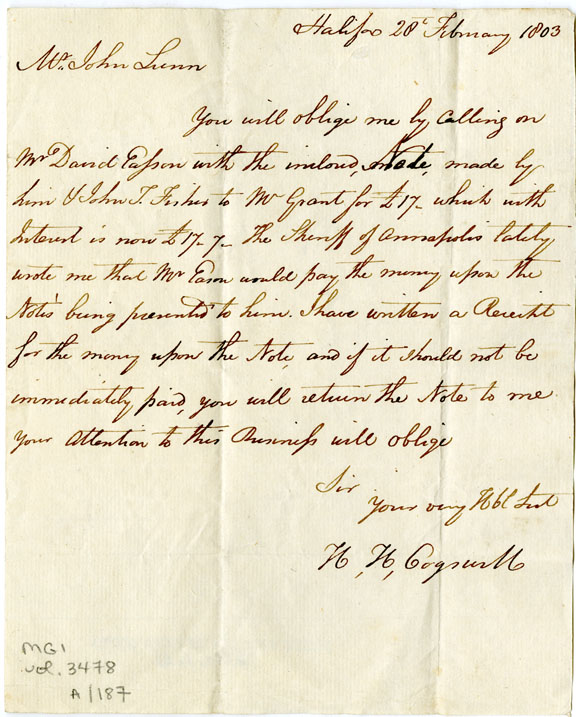 Halifax 28th February 1803
Mr. John Lunn
You will oblige me by Calling on
Mr David Easson with the inclosd, Note, made by
him & John T. Fisher to Mr Grant for £17- which with
Interest is now £17-7- The Sheriff of Annapolis lately
wrote me that Mr Eason would pay the money upon the
Note's being presented to him. I have written a Receipt
for the money upon the Note, and if it should not be
immediately paid, you will return the Note to me
Your Attention to this Business will oblige
Sir
Your very Hbl Svt
H, H, Cogswell
MG1
vol. 3478
A/187